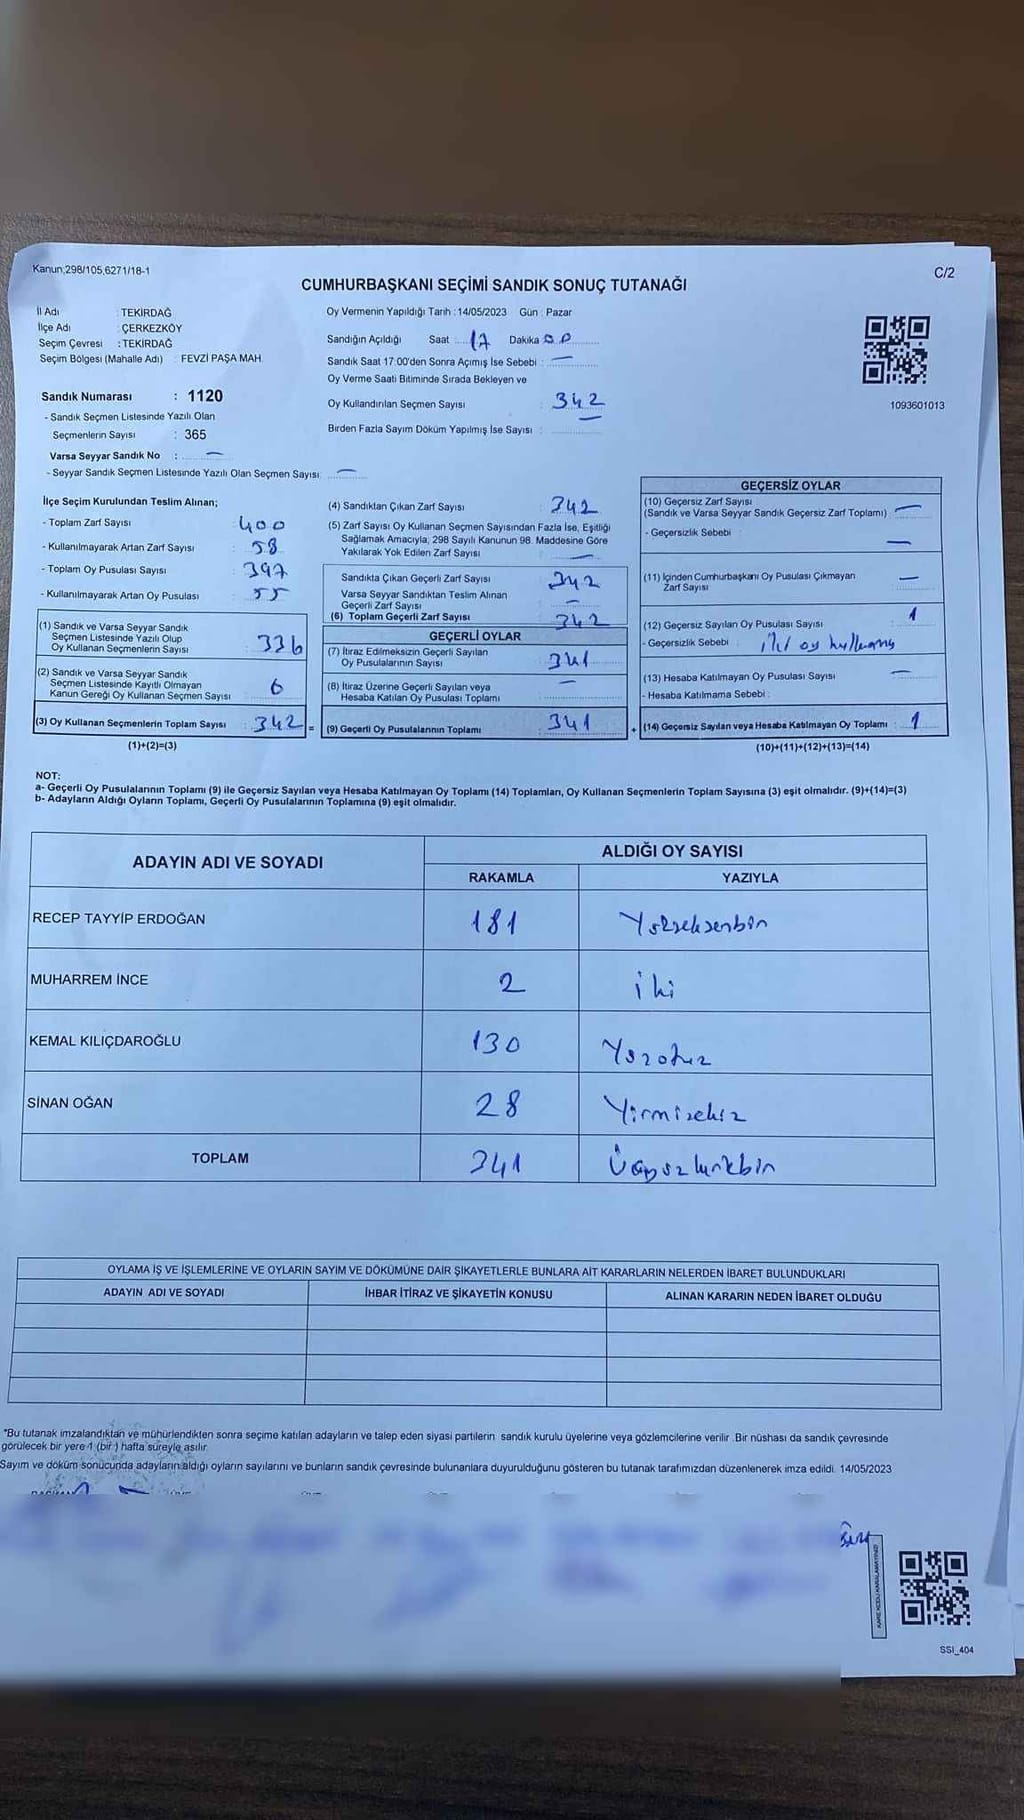 Kanun,298/105,6271/18-1
C/2
CUMHURBAŞKANI SEÇİMİ SANDIK SONUÇ TUTANAĞI
İl Adı : TEKİRDAĞ
İlçe Adı : ÇERKEZKÖY
Seçim Çevresi : TEKİRDAĞ
Seçim Bölgesi (Mahalle Adı) : FEVZİ PAŞA MAH.
Sandık Numarası : 1120
- Sandık Seçmen Listesinde Yazılı Olan
Seçmenlerin Sayısı : 365
Varsa Seyyar Sandık No : —
- Seyyar Sandık Seçmen Listesinde Yazılı Olan Seçmen Sayısı: —
Oy Vermenin Yapıldığı Tarih : 14/05/2023 Gün : Pazar
Sandığın Açıldığı Saat 17 Dakika 00
Sandık Saat 17.00'den Sonra Açımış İse Sebebi : —
Oy Verme Saati Bitiminde Sırada Bekleyen ve
Oy Kullandırılan Seçmen Sayısı : 342
Birden Fazla Sayım Döküm Yapılmış İse Sayısı : —
1093601013
İlçe Seçim Kurulundan Teslim Alınan;
- Toplam Zarf Sayısı : 400
- Kullanılmayarak Artan Zarf Sayısı : 58
- Toplam Oy Pusulası Sayısı : 397
- Kullanılmayarak Artan Oy Pusulası : 55
(1) Sandık ve Varsa Seyyar Sandık
Seçmen Listesinde Yazılı Olup
Oy Kullanan Seçmenlerin Sayısı : 336
(2) Sandık ve Varsa Seyyar Sandık
Seçmen Listesinde Kayıtlı Olmayan
Kanun Gereği Oy Kullanan Seçmen Sayısı : 6
(3) Oy Kullanan Seçmenlerin Toplam Sayısı : 342 =
(1)+(2)=(3)
(4) Sandıktan Çıkan Zarf Sayısı : 342
(5) Zarf Sayısı Oy Kullanan Seçmen Sayısından Fazla İse, Eşitliği
Sağlamak Amacıyla; 298 Sayılı Kanunun 98. Maddesine Göre
Yakılarak Yok Edilen Zarf Sayısı : —
Sandıkta Çıkan Geçerli Zarf Sayısı : 342
Varsa Seyyar Sandıktan Teslim Alınan
Geçerli Zarf Sayısı : —
(6) Toplam Geçerli Zarf Sayısı : 342
GEÇERLİ OYLAR
(7) İtiraz Edilmeksizin Geçerli Sayılan
Oy Pusulalarının Sayısı : 341
(8) İtiraz Üzerine Geçerli Sayılan veya
Hesaba Katılan Oy Pusulası Toplamı : —
(9) Geçerli Oy Pusulalarının Toplamı : 341 +
GEÇERSİZ OYLAR
(10) Geçersiz Zarf Sayısı
(Sandık ve Varsa Seyyar Sandık Geçersiz Zarf Toplamı) : —
- Geçersizlik Sebebi : —
(11) İçinden Cumhurbaşkanı Oy Pusulası Çıkmayan
Zarf Sayısı : —
(12) Geçersiz Sayılan Oy Pusulası Sayısı : 1
- Geçersizlik Sebebi : iki oy kullanmış
(13) Hesaba Katılmayan Oy Pusulası Sayısı : —
- Hesaba Katılmama Sebebi :
(14) Geçersiz Sayılan veya Hesaba Katılmayan Oy Toplamı : 1
(10)+(11)+(12)+(13)=(14)
NOT:
a- Geçerli Oy Pusulalarının Toplamı (9) ile Geçersiz Sayılan veya Hesaba Katılmayan Oy Toplamı (14) Toplamları, Oy Kullanan Seçmenlerin Toplam Sayısına (3) eşit olmalıdır. (9)+(14)=(3)
b- Adayların Aldığı Oyların Toplamı, Geçerli Oy Pusulalarının Toplamına (9) eşit olmalıdır.
ADAYIN ADI VE SOYADI
ALDIĞI OY SAYISI
RAKAMLA YAZIYLA
RECEP TAYYİP ERDOĞAN 181 Yüzseksenbir
MUHARREM İNCE 2 iki
KEMAL KILIÇDAROĞLU 130 Yüzotuz
SİNAN OĞAN 28 Yirmisekiz
TOPLAM 341 Üçyüzkırkbir
OYLAMA İŞ VE İŞLEMLERİNE VE OYLARIN SAYIM VE DÖKÜMÜNE DAİR ŞİKAYETLERLE BUNLARA AİT KARARLARIN NELERDEN İBARET BULUNDUKLARI
ADAYIN ADI VE SOYADI İHBAR İTİRAZ VE ŞİKAYETİN KONUSU ALINAN KARARIN NEDEN İBARET OLDUĞU
*Bu tutanak imzalandıktan ve mühürlendikten sonra seçime katılan adayların ve talep eden siyasi partilerin sandık kurulu üyelerine veya gözlemcilerine verilir. Bir nüshası da sandık çevresinde
görülecek bir yere 1 (bir) hafta süreyle asılır.
Sayım ve döküm sonucunda adayların aldığı oyların sayılarını ve bunların sandık çevresinde bulunanlara duyurulduğunu gösteren bu tutanak tarafımızdan düzenlenerek imza edildi. 14/05/2023
KARE KODU KARALAMAYINIZ!
SSI_404